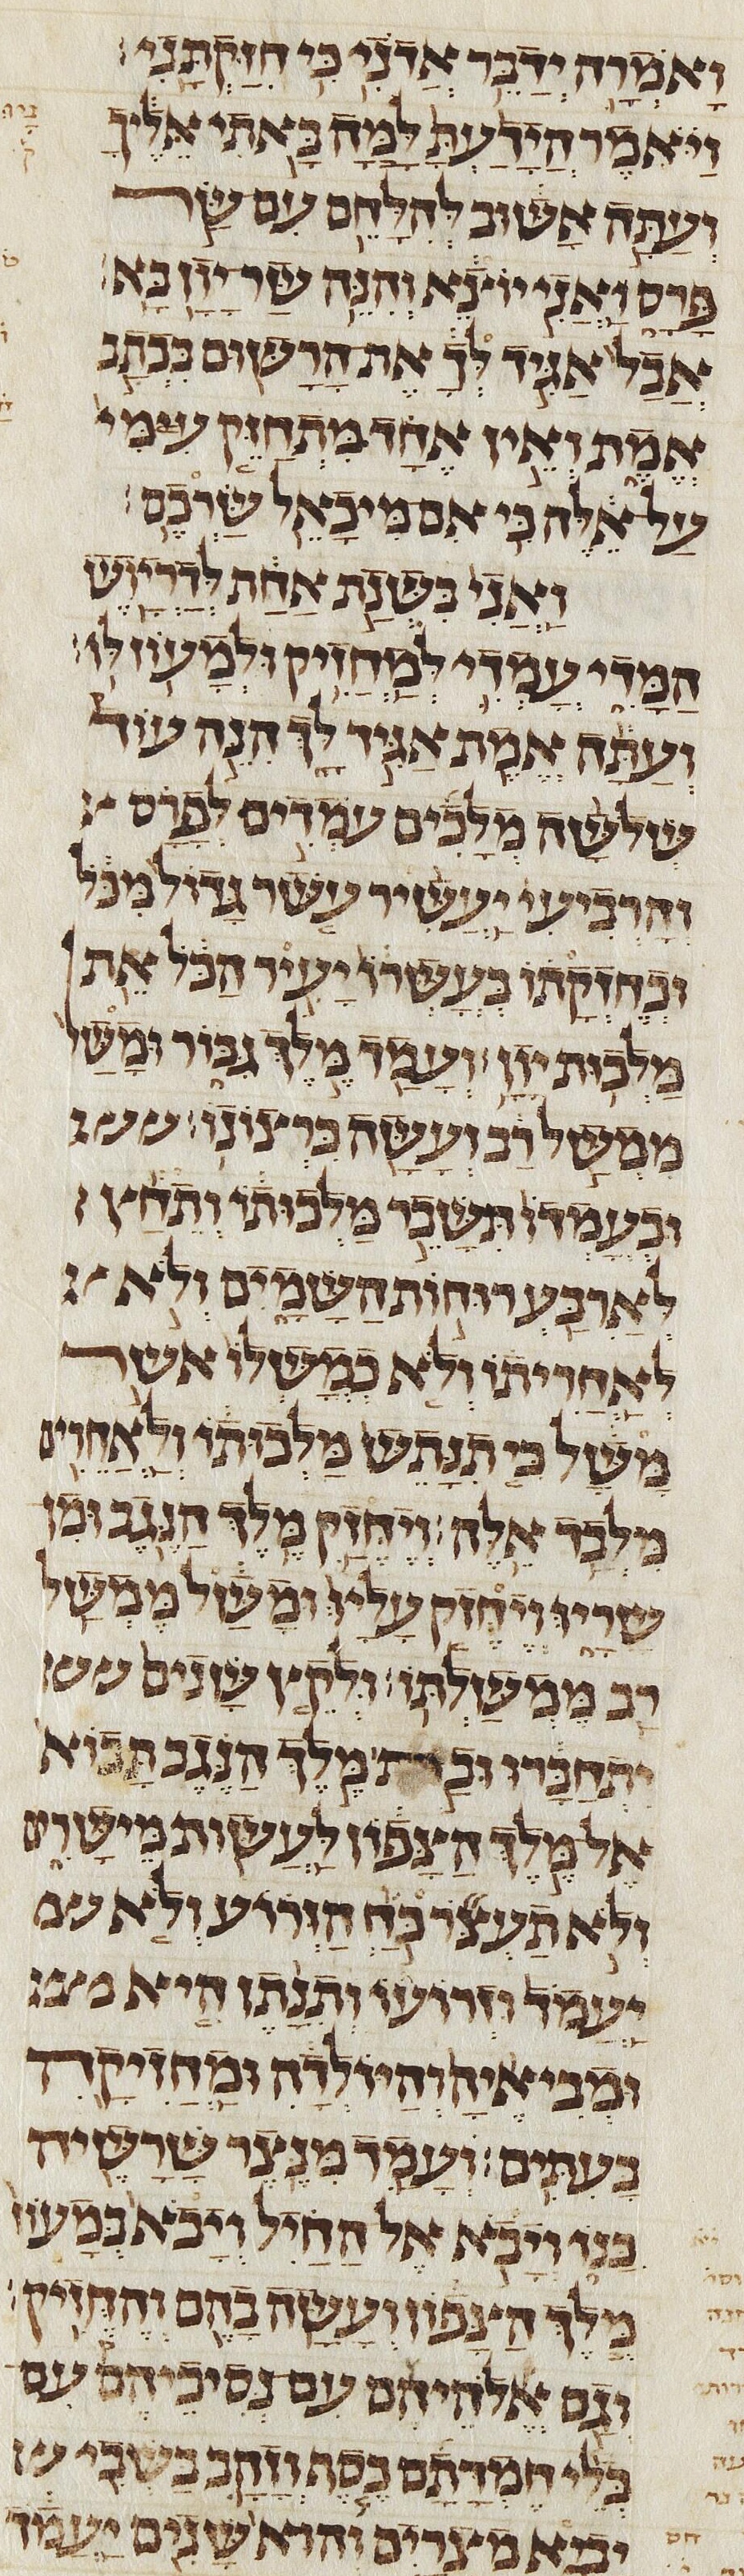 וָאֹמְרָה יְדַבֵּר אֲדֹנִי כִּי חִזַּקְתָּנִי׃
וַיֹּאמֶר הֲיָדַעְתָּ לָמָּה בָּאתִי אֵלֶיךָ
וְעַתָּה אָשׁוּב לְהִלָּחֵם עִם שַׂר
פָּרָס וַאֲנִי יוֹצֵא וְהִנֵּה שַׂר יָוָן בָּא׃
אֲבָל אַגִּיד לְךָ אֶת הָרָשׁוּם בִּכְתָב
אֱמֶת וְאֵין אֶחָד מִתְחַזֵּק עִמִּי
עַל אֵלֶּה כִּי אִם מִיכָאֵל שַׂרְכֶם׃
וַאֲנִי בִּשְׁנַת אַחַת לְדָרְיָוֶשׁ
הַמָּדִי עָמְדִי לְמַחֲזִיק וּלְמָעוֹז לוֹ׃
וְעַתָּה אֱמֶת אַגִּיד לָךְ הִנֵּה עוֹד
שְׁלֹשָׁה מְלָכִים עֹמְדִים לְפָרַס
וְהָרְבִיעִי יַעֲשִׁיר עֹשֶׁר גָּדוֹל מִכֹּל
וּכְחֶזְקָתוֹ בְעָשְׁרוֹ יָעִיר הַכֹּל אֵת
מַלְכוּת יָוָן׃ וְעָמַד מֶלֶךְ גִּבּוֹר וּמָשַׁל
מִמְשָׁל רַב וְעָשָׂה כִּרְצוֹנוֹ׃
וּכְעָמְדוֹ תִּשָּׁבֵר מַלְכוּתוֹ וְתֵחָץ
לְאַרְבַּע רוּחוֹת הַשָּׁמָיִם וְלֹא
לְאַחֲרִיתוֹ וְלֹא כְמָשְׁלוֹ אֲשֶׁר
מָשָׁל כִּי תִנָּתֵשׁ מַלְכוּתוֹ וְלַאֲחֵרִים
מִלְּבַד אֵלֶּה׃ וְיֶחֱזַק מֶלֶךְ הַנֶּגֶב וּמִן
שָׂרָיו וְיֶחֱזַק עָלָיו וּמָשָׁל מִמְשָׁל
רַב מֶמְשַׁלְתּוֹ׃ וּלְקֵץ שָׁנִים
יִתְחַבָּרוּ מֶלֶךְ הַנֶּגֶב תָּבוֹא
אֶל מֶלֶךְ הַצָּפוֹן לַעֲשׂוֹת מֵישָׁרִים
וְלֹא תַעְצֹר כֹּחַ הַזְּרוֹעַ וְלֹא
יַעֲמֹד וּזְרֹעוֹ וְתִנָּתֵן הִיא
וּמְבִיאֶיהָ וְהַיּוֹלְדָהּ וּמַחֲזִיקָהּ
בָּעִתִּים׃ וְעָמַד מִנֵּצֶר שָׁרָשֶׁיהָ
כַּנּוֹ וְיָבֹא אֶל הַחַיִל וְיָבֹא בְּמָעוֹז
מֶלֶךְ הַצָּפוֹן וְעָשָׂה בָהֶם וְהֶחֱזִיק׃
וְגַם אֱלֹהֵיהֶם עִם נְסִיכֵיהֶם עִם
כְּלֵי חֶמְדָּתָם כֶּסֶף וְזָהָב בַּשְּׁבִי
יָבִא מִצְרָיִם וְהוּא שָׁנִים יַעֲמֹד